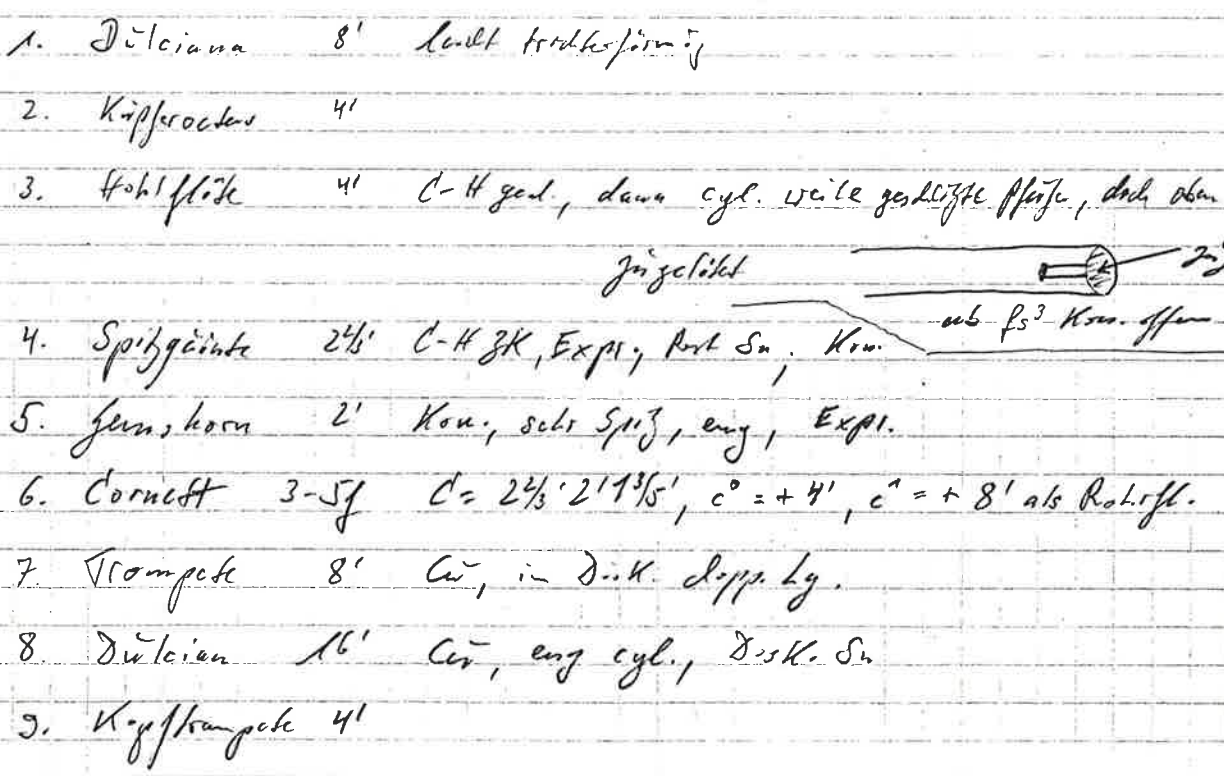 1. Dulciana 8' leicht trichterförmig
2. Kupferoctav 4'
3. Hohlflöte 4' C-H ged., dann cyl. weite geschlitzte Pfeifen, doch oben
zugelötet
ab fs³ Kon. offen
4. Spitzquinte 2⅔' C-H ZK, Expr., Rest Sn, Kon.
5. Gemshorn 2' Kon., sehr Spitz, eng, Expr.
6. Cornett 3-5f C = 2⅔' 2' 1⅗', c° = + 4', c¹ = + 8' als Rohrfl.
7. Trompete 8' Cu, in Disk. dopp. Lg.
8. Dulcian 16' Cu, eng cyl., Disk. Sn
9. Kopftrompete 4'